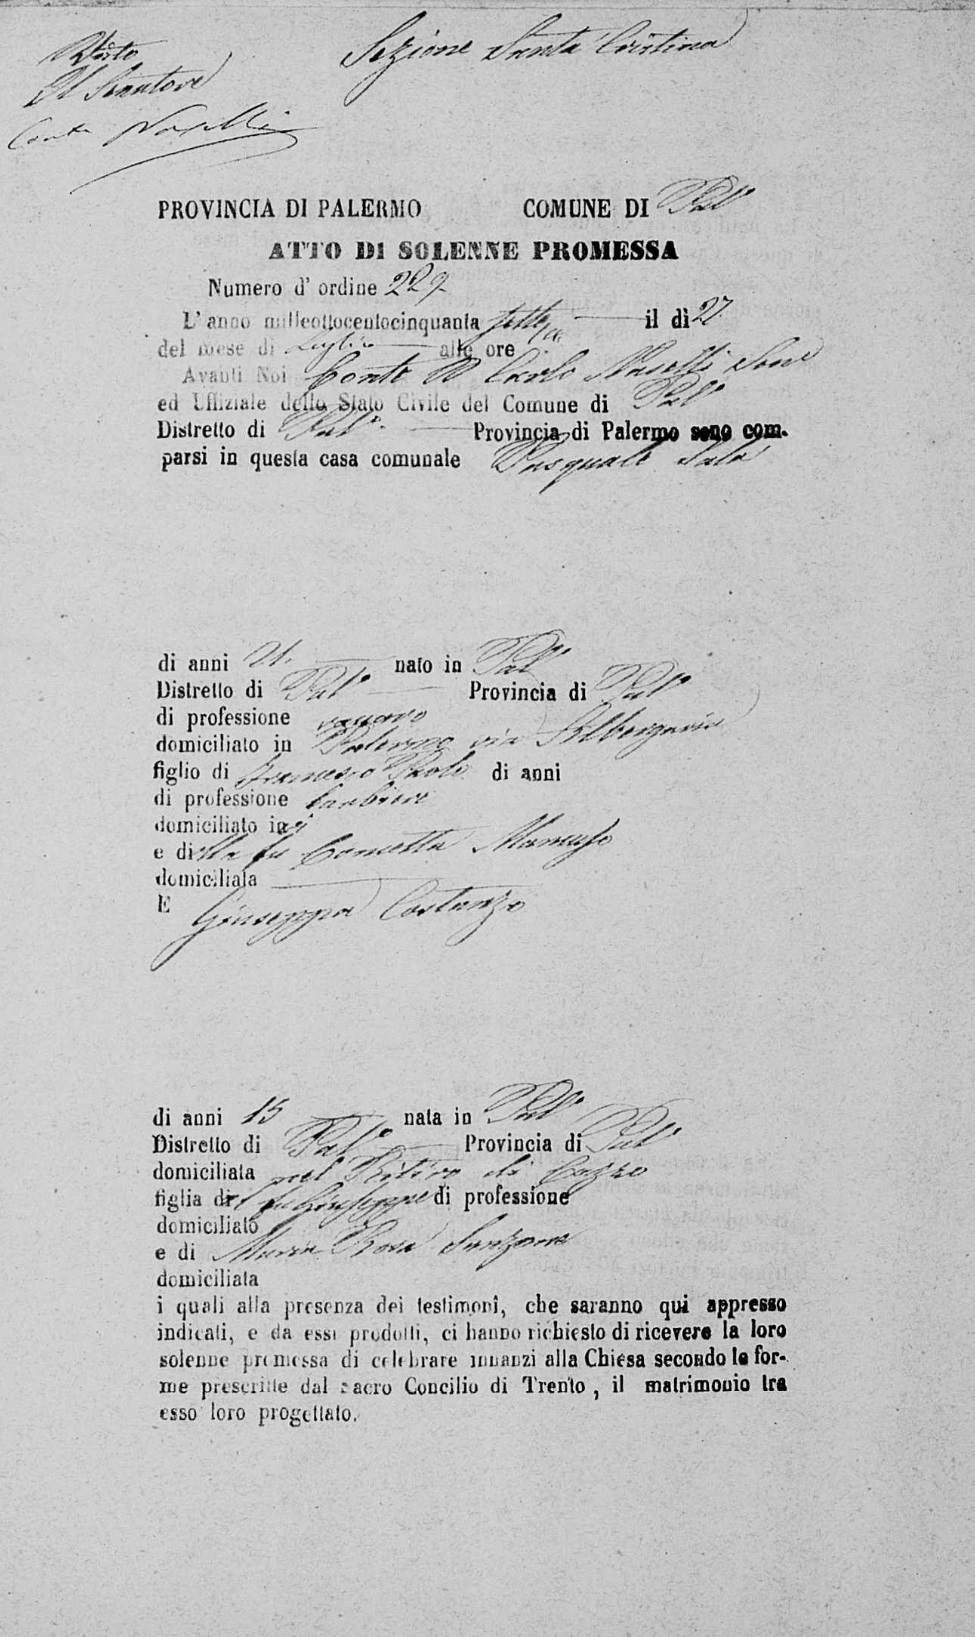 Visto
Il Senatore
Conte
Sezione Santa Cristina
PROVINCIA DI PALERMO COMUNE DI Pal°
ATTO DI SOLENNE PROMESSA
Numero d' ordine 229
L' anno milleottocentocinquanta sette il dì 27
del mese di Luglio alle ore
Avanti Noi Conte D Carlo
ed Uffiziale dello Stato Civile del Comune di Pal°
Distretto di Pal° Provincia di Palermo sono com-
parsi in questa casa comunale Pasquale Sala
di anni 21. nato in Pal°
Distretto di Pal° Provincia di Pal°
di professione
domiciliato in Palermo via Albergaria
figlio di Francesco Paolo di anni
di professione barbiere
domiciliato in
e di lla fu Concetta
domiciliata
E Giuseppa Costanzo
di anni 15 nata in Pal°
Distretto di Pal° Provincia di Pal°
domiciliata nel Ritiro di
figlia di l fu Giuseppe di professione
domiciliato
e di Maria Rosa Sanzone
domiciliata
i quali alla presenza dei testimonî, che saranno qui appresso
indicati, e da essi prodotti, ci hanno richiesto di ricevere la loro
solenne promessa di celebrare innanzi alla Chiesa secondo le for-
me prescritte dal sacro Concilio di Trento, il matrimonio tra
esso loro progettato.